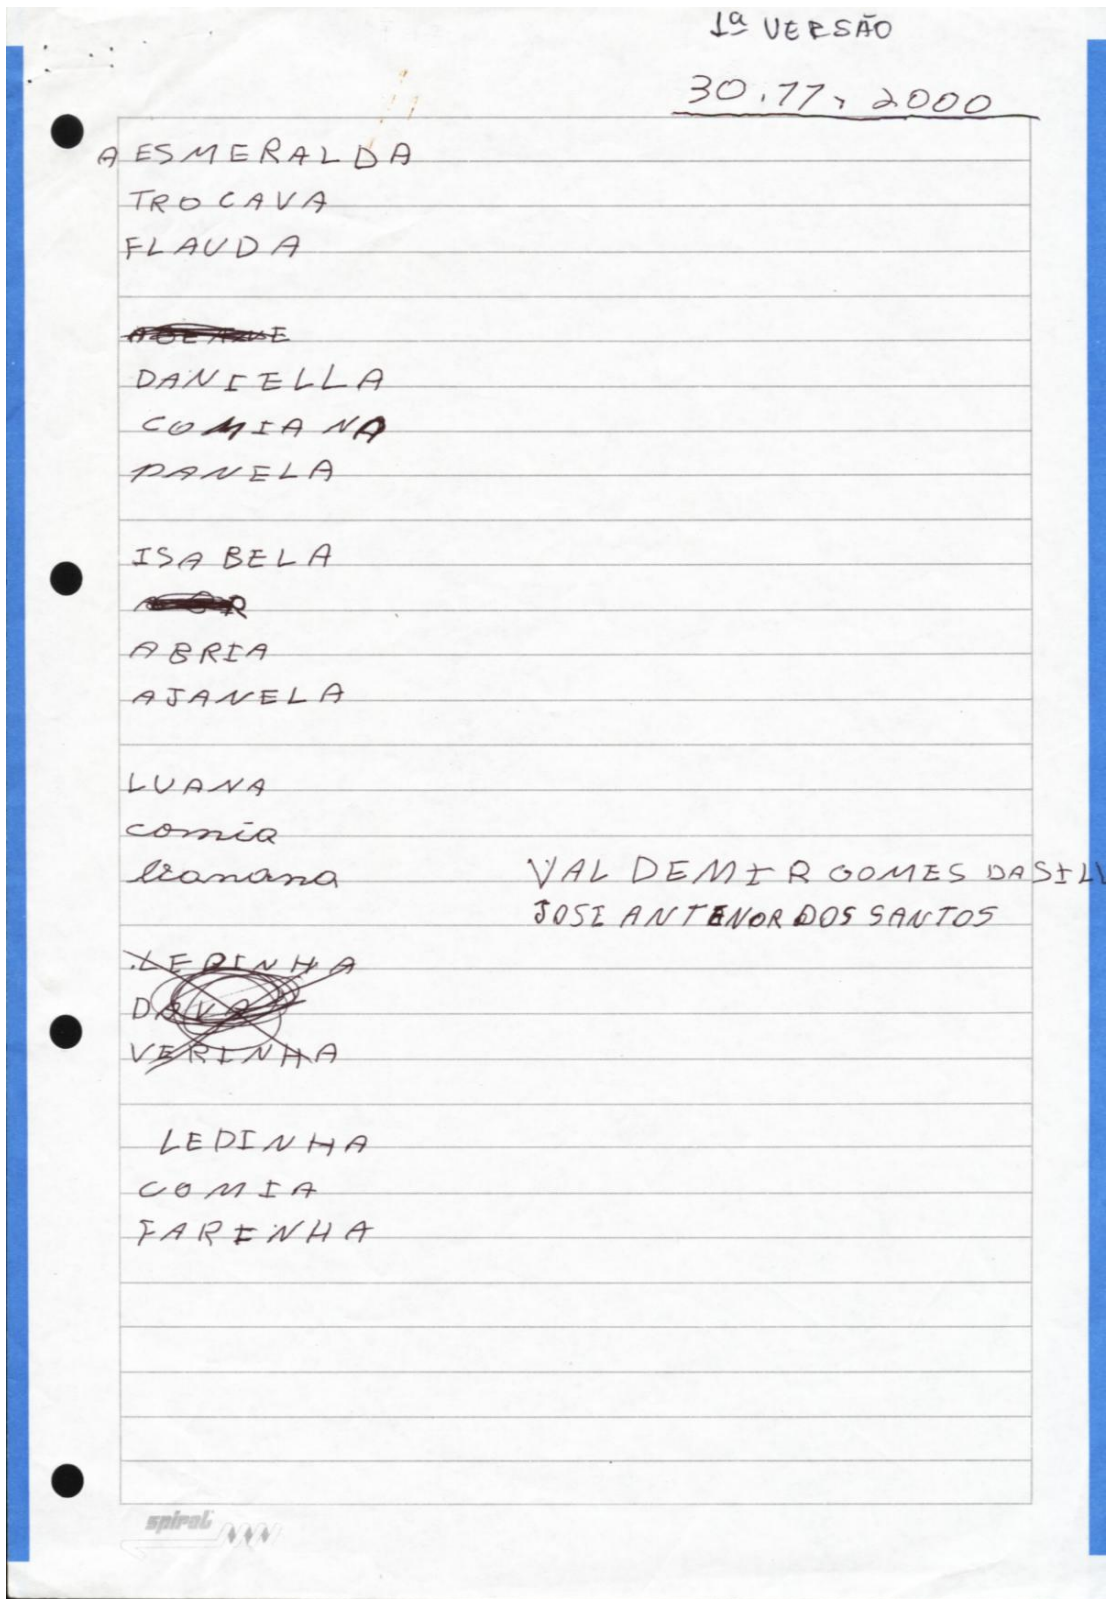 1ª VERSÃO
30.11, 2000
A ESMERALDA
TROCAVA
FLAUDA
DANIELLA
COMIA NA
PANELA
ISABELA
ABRIA
AJANELA
LUANA
comia
banana
VALDEMIR GOMES DASILV
JOSE ANTENOR DOS SANTOS
LEDINHA
DAVA
VERINHA
LEDINHA
COMIA
FARINHA
spiral